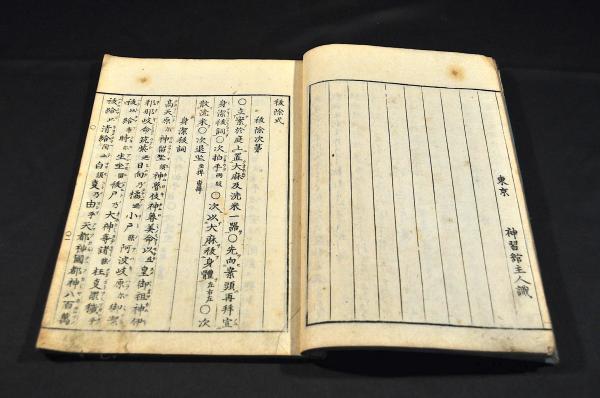 東京
神習舘主人識
祓除式
祓除次第
〇立案於庭上置大麻及洗米一器〇先向案頭再拜宣
身潔祓詞〇次拍手両段〇次以大麻祓身體左右左〇次
散洗米〇次退坐
身潔祓詞
高天原尓神留坐神魯岐神魯美命以皇御祖神伊
邪那岐命筑紫乃日向乃橘乃小戸乃阿波岐原尓御禊
祓比給布時尓生坐留祓戸乃大神等諸枉事罪穢
祓給比清給白須事乃由乎天都神國都神八百萬